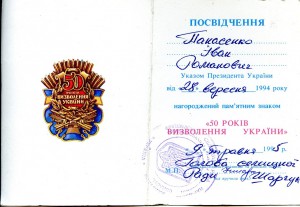 50
РОКІВ
ВИЗВОЛЕННЯ
УКРАЇНИ
ПОСВІДЧЕННЯ
Панасенко
Іван
Романович
Указом Президента України
від «28» вересня 1994 року
нагороджений пам'ятним знаком
"50 РОКІВ
ВИЗВОЛЕННЯ УКРАЇНИ"
9 травня 1995 р.
Голова селищної
М.П. Ради